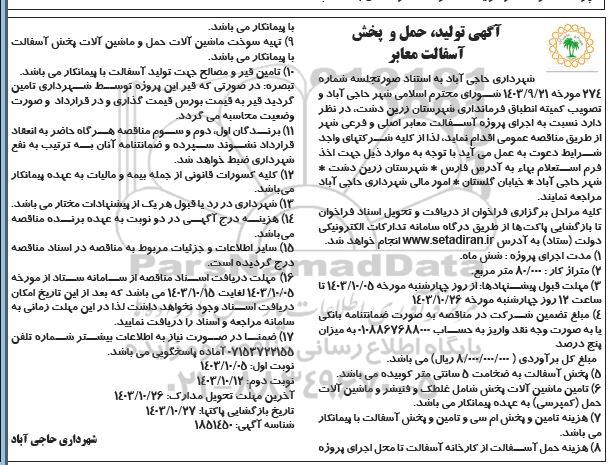 آگهی تولید، حمل و پخش
آسفالت معابر
شهرداری حاجی آباد به استناد صورتجلسه شماره
۲۷۴ مورخه ۱۴۰۳/۹/۲۱ شورای محترم اسلامی شهر حاجی آباد و
تصویب کمیته انطباق فرمانداری شهرستان زرین دشت، در نظر
دارد نسبت به اجرای پروژه آسفالت معابر اصلی و فرعی شهر
از طریق مناقصه عمومی اقدام نماید، لذا از کلیه شرکتهای واجد
شرایط دعوت به عمل می آید با توجه به موارد ذیل جهت اخذ
فرم استعلام بهاء به آدرس فارس * شهرستان زرین دشت *
شهر حاجی آباد * خیابان گلستان * امور مالی شهرداری حاجی آباد
مراجعه نمایند.
کلیه مراحل برگزاری فراخوان از دریافت و تحویل اسناد فراخوان
تا بازگشایی پاکت‌ها از طریق درگاه سامانه تدارکات الکترونیکی
دولت (ستاد) به آدرس www.setadiran.ir انجام خواهد شد.
۱) مدت اجرای پروژه : شش ماه.
۲) متراژ کار : ۸۰/۰۰۰ متر مربع.
۳) مهلت قبول پیشنهادها: از روز چهارشنبه مورخه ۱۴۰۳/۱۰/۰۵ تا
ساعت ۱۲ روز چهارشنبه مورخه ۱۴۰۳/۱۰/۲۶
۴) مبلغ تضمین شرکت در مناقصه به صورت ضمانتنامه بانکی
یا به صورت وجه نقد واریز به حساب ۰۱۰۸۸۶۷۶۸۸۰۰۰ به میزان
پنج درصد
مبلغ کل برآوردی ( ۸/۰۰۰/۰۰۰/۰۰۰ ریال) می باشد.
۵) پخش آسفالت به ضخامت ۵ سانتی متر کوبیده می باشد.
۶) تامین ماشین آلات پخش شامل غلطک و فنیشر و ماشین آلات
حمل (کمپرسی) به عهده پیمانکار می باشد.
۷) هزینه تامین و پخش ام سی و تامین و پخش آسفالت با پیمانکار
می باشد.
۸) هزینه حمل آسفالت از کارخانه آسفالت تا محل اجرای پروژه
با پیمانکار می باشد.
۹) تهیه سوخت ماشین آلات حمل و ماشین آلات پخش آسفالت
با پیمانکار می باشد.
۱۰) تامین قیر و مصالح جهت تولید آسفالت با پیمانکار می باشد.
تبصره: در صورتی که قیر این پروژه توسط شهرداری تامین
گردید قیر به قیمت بورس قیمت گذاری و در قرارداد و صورت
وضعیت محاسبه می گردد.
۱۱) برندگان اول، دوم و سوم مناقصه هرگاه حاضر به انعقاد
قرارداد نشوند سپرده و ضمانتنامه آنان به ترتیب به نفع
شهرداری ضبط خواهد شد.
۱۲) کلیه کسورات قانونی از جمله بیمه و مالیات به عهده پیمانکار
می‌باشد.
۱۳) شهرداری در رد یا قبول هر یک از پیشنهادات مختار می باشد.
۱۴) هزینه درج آگهی در دو نوبت به عهده برنده مناقصه
می‌باشد.
۱۵) سایر اطلاعات و جزئیات مربوط به مناقصه در اسناد مناقصه
درج گردیده است.
۱۶) مهلت دریافت اسناد مناقصه از سامانه ستاد از مورخه
۱۴۰۳/۱۰/۰۵ لغایت ۱۴۰۳/۱۰/۱۵ می باشد که بعد از این تاریخ امکان
دریافت اسناد وجود نخواهد داشت لذا در این مهلت زمانی به
سامانه مراجعه و اسناد را دریافت نمایید.
۱۷) ضمنا در صورت نیاز به اطلاعات بیشتر شماره تلفن
۰۷۱۵۳۷۲۲۱۵۵ آماده پاسخگویی می باشد.
نوبت اول: ۱۴۰۳/۱۰/۰۵
نوبت دوم: ۱۴۰۳/۱۰/۱۲
آخرین مهلت تحویل مدارک: ۱۴۰۳/۱۰/۲۶
تاریخ بازگشایی پاکتها: ۱۴۰۳/۱۰/۲۷
شناسه آگهی: ۱۸۵۱۴۵۰
شهرداری حاجی آباد